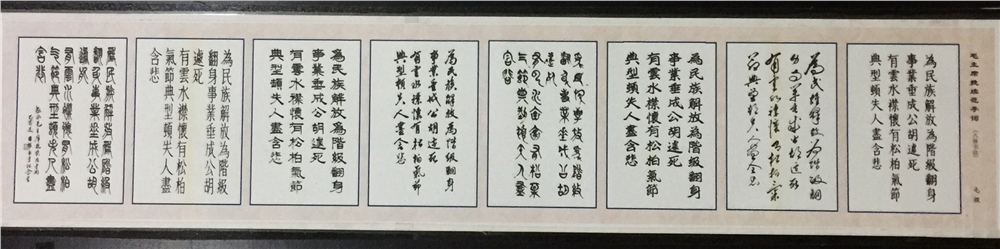 毛主席挽续范亭词
為民族解放為階級翻身
事業垂成公胡遽死
有雲水襟懷有松柏氣節
典型頓失人盡含悲
為民族解放為階級翻
身事業垂成公胡遽死
有雲水襟懷有松柏氣
節典型頓失人盡含悲
為民族解放為階級翻身
事業垂成公胡遽死
有雲水襟懷有松柏氣節
典型頓失人盡含悲
為民族解放為階級
翻身事業垂成公胡
遽死
有雲水襟懷有松柏
氣節典型頓失人盡
含悲
為民族解放為階級翻身
事業垂成公胡遽死
有雲水襟懷有松柏氣節
典型頓失人盡含悲
為民族解放為階級翻身
事業垂成公胡遽死
有雲水襟懷有松柏氣節
典型頓失人盡含悲
為民族解放為階級
翻身事業垂成公胡
遽死
有雲水襟懷有松柏
氣節典型頓失人盡
含悲
為民族解放為階級
翻身事業垂成公胡
遽死
有雲水襟懷有松柏
氣節典型頓失人盡
含悲